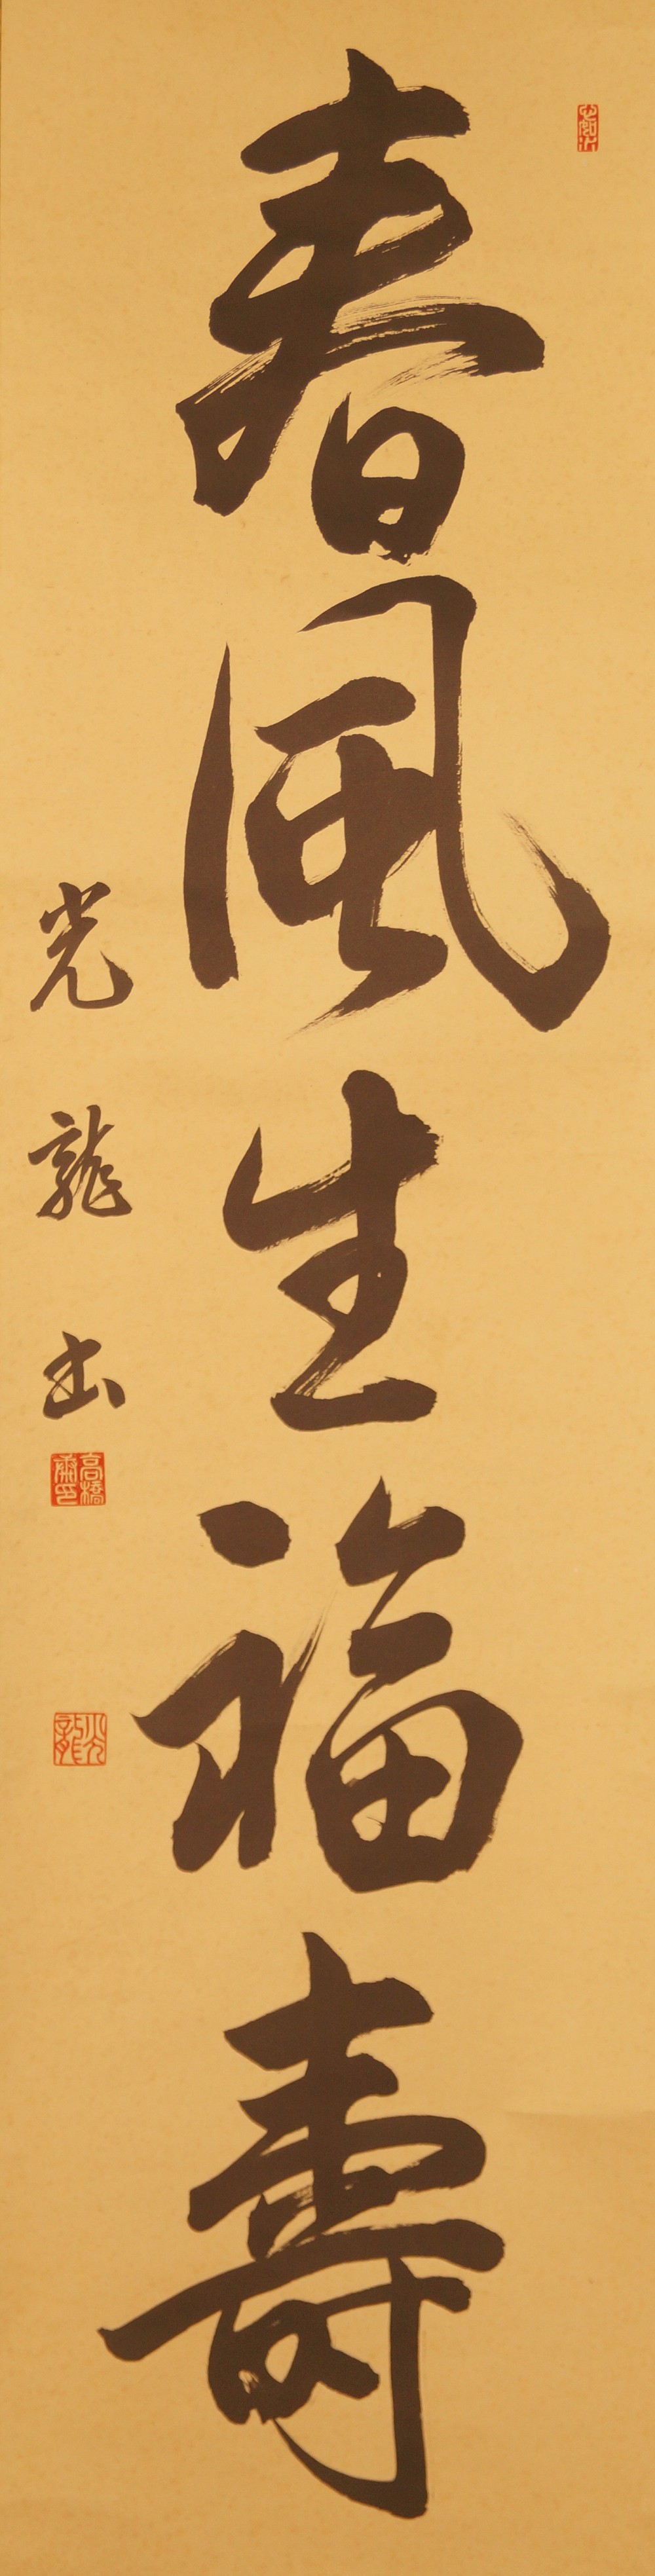 春風生福壽
光龍書
高橋
光龍